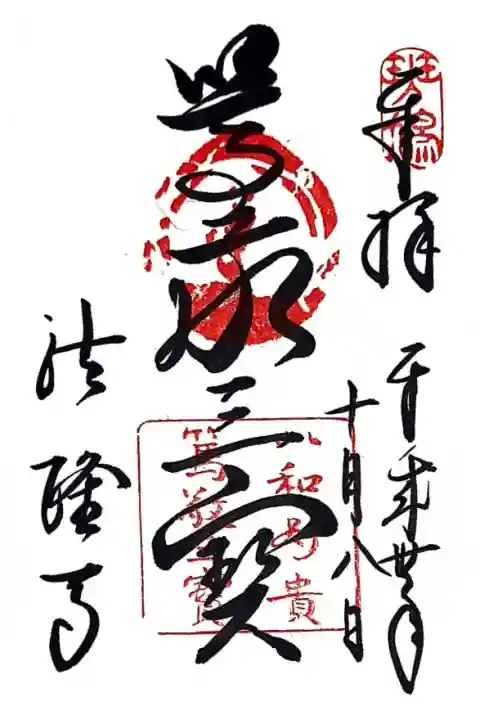 斑鳩
奉拝
平成丗年
十月八日
篤敬三寳
以和為貴
篤敬三寳
法隆寺